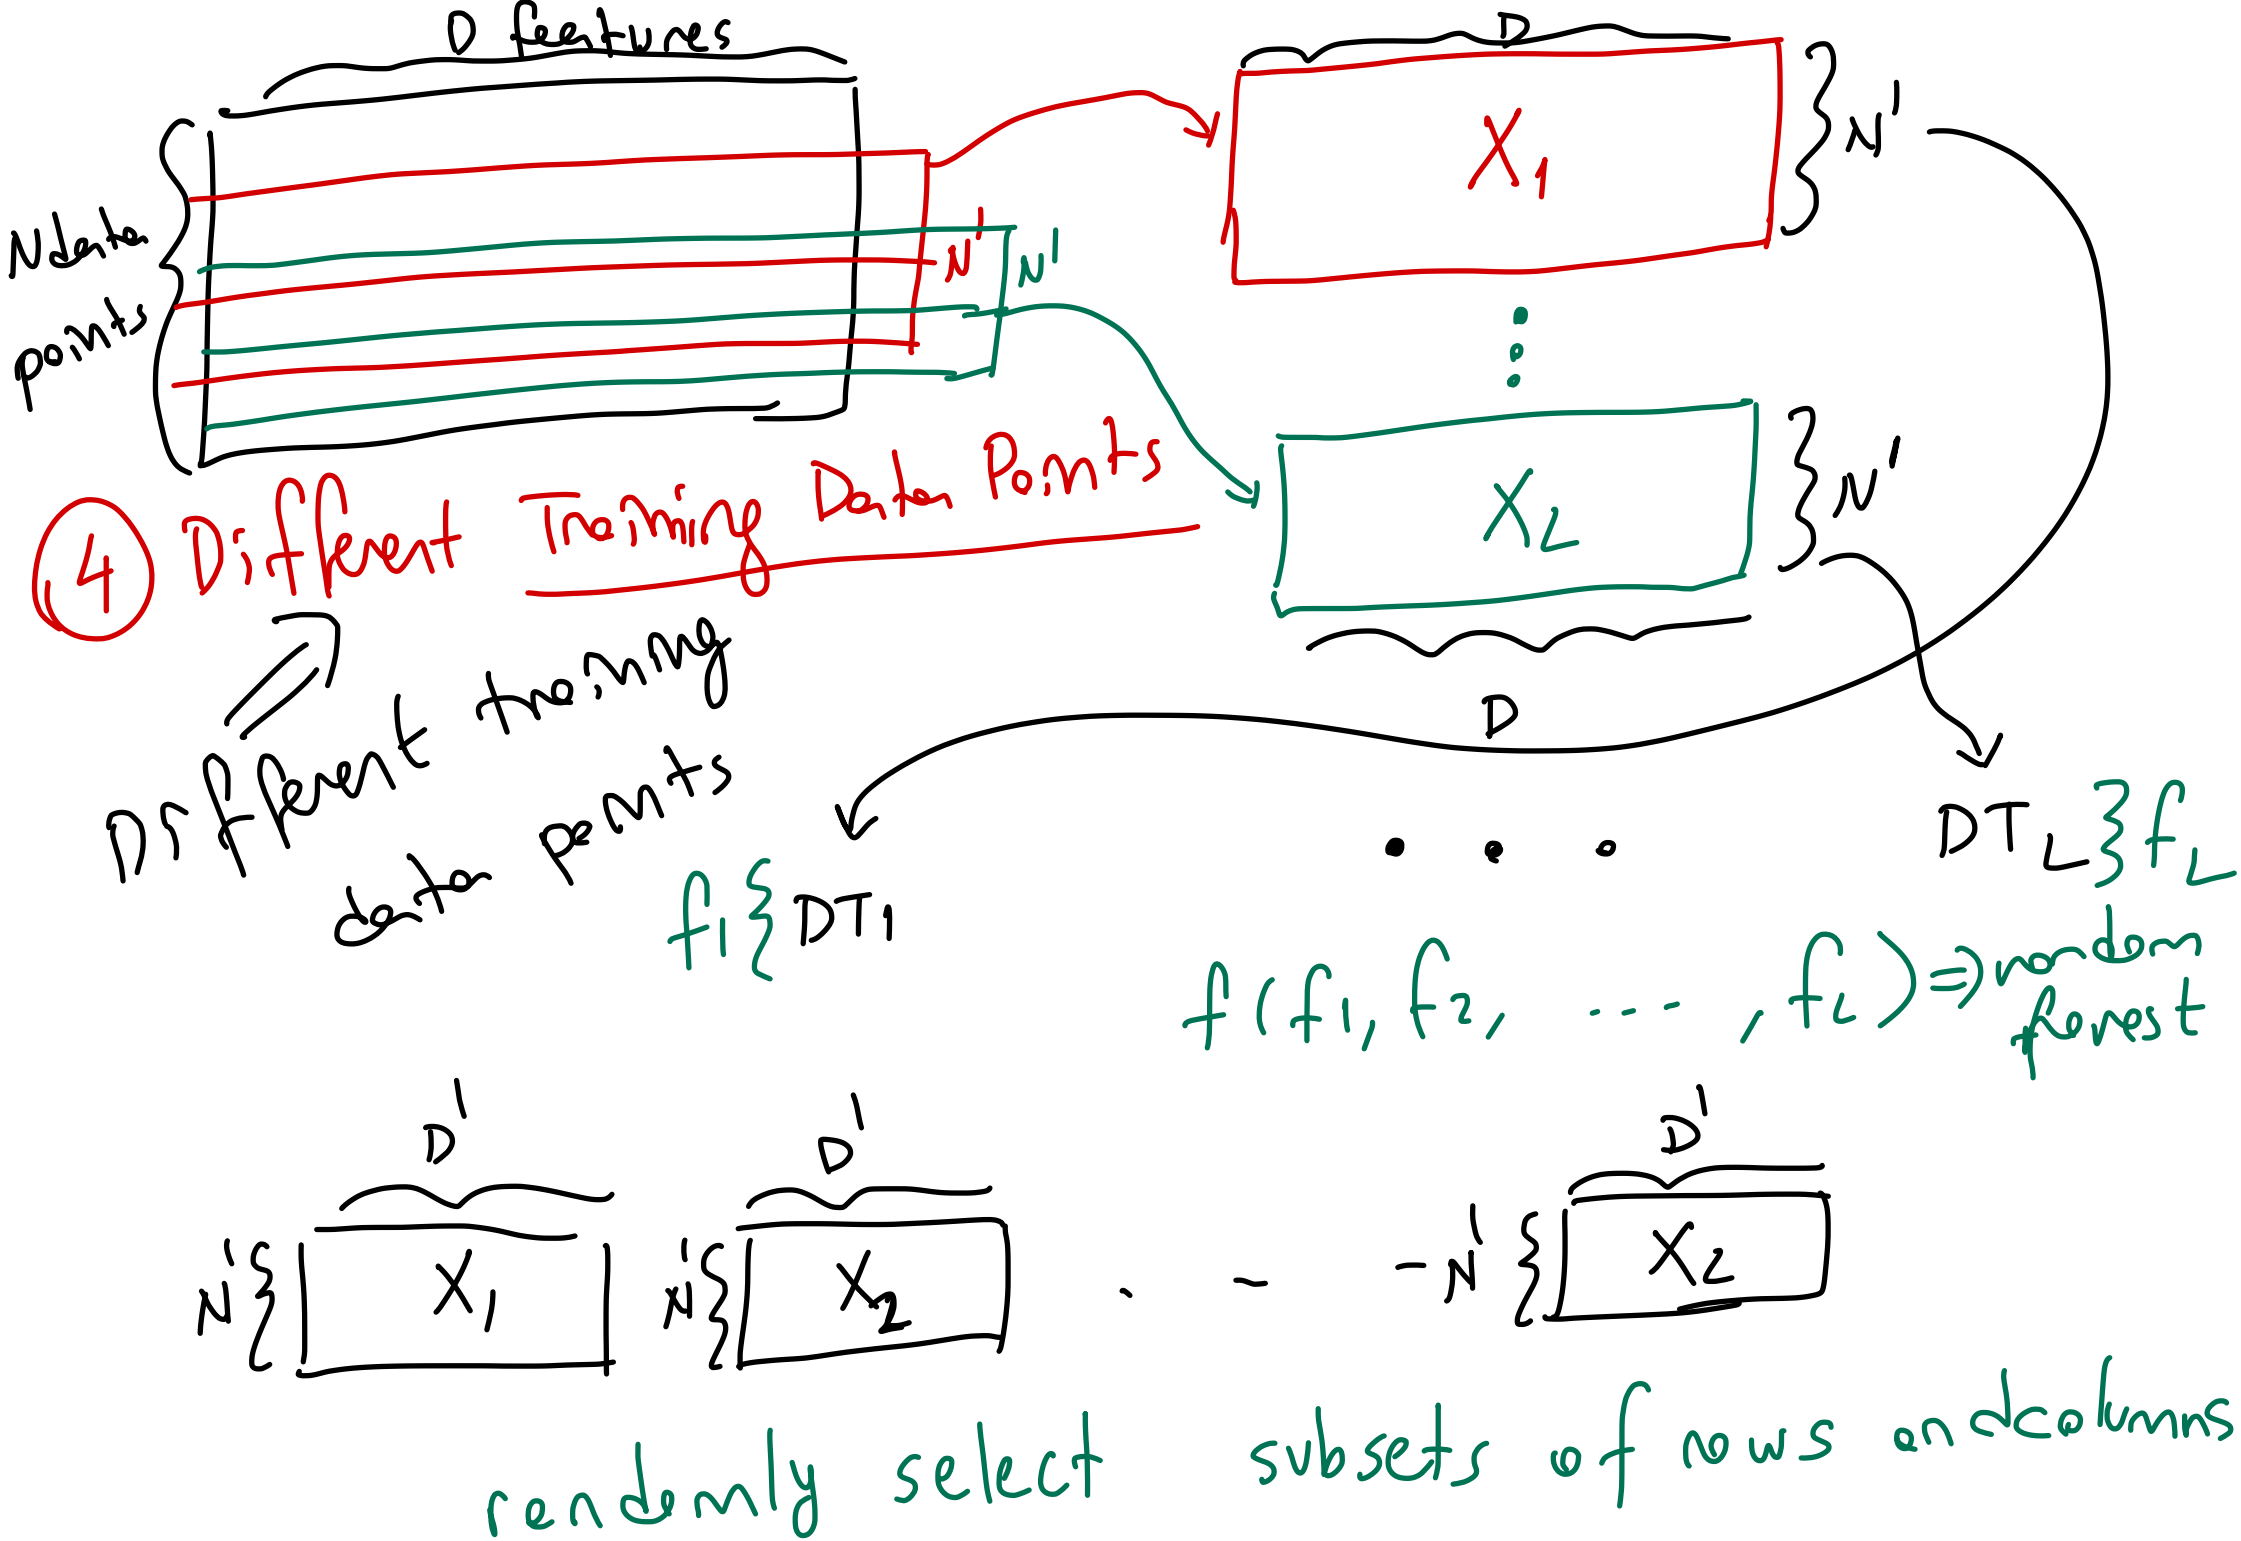 D features
D
N data
points
N'
N'
X1
N'
X2
N'
D
④ Different Training Data Points
Different training
data points
f1 { DT1
DTL } fL
f(f1, f2, ..., fL) ⇒ random
forest
D'
D'
D'
N' { X1
N' { X2
- - - N' { X2
randomly select subsets of rows and columns